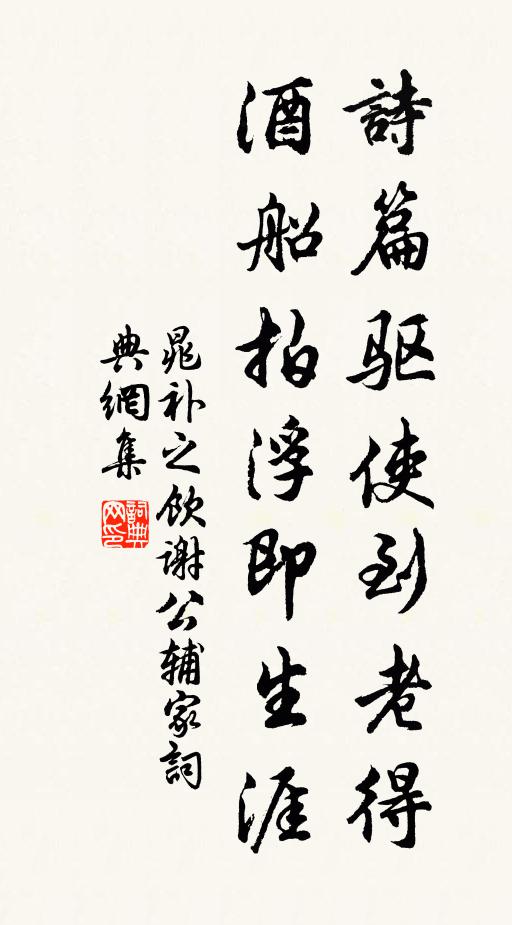 詩篇驱使到老得
酒船拍浮即生涯
晁补之飲谢公辅家詞
典網集
詞典网印